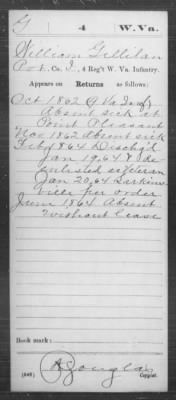 G 4 W. Va.
William Gillilan
Pvt, Co. I, 4 Reg't W. Va. Infantry.
Appears on Returns as follows:
Oct 1862 (9 Va Inf)
Absent sick at
Point Pleasant
Nov 1862 Absent sick
Feby 1864 Disch'd
Jan 19, 64 & Re
enlisted as Veteran
Jan 20, 64 Larkins
ville per order
June 1864 Absent
Without leave
Book mark:
(546) A Douglas
Copyist.